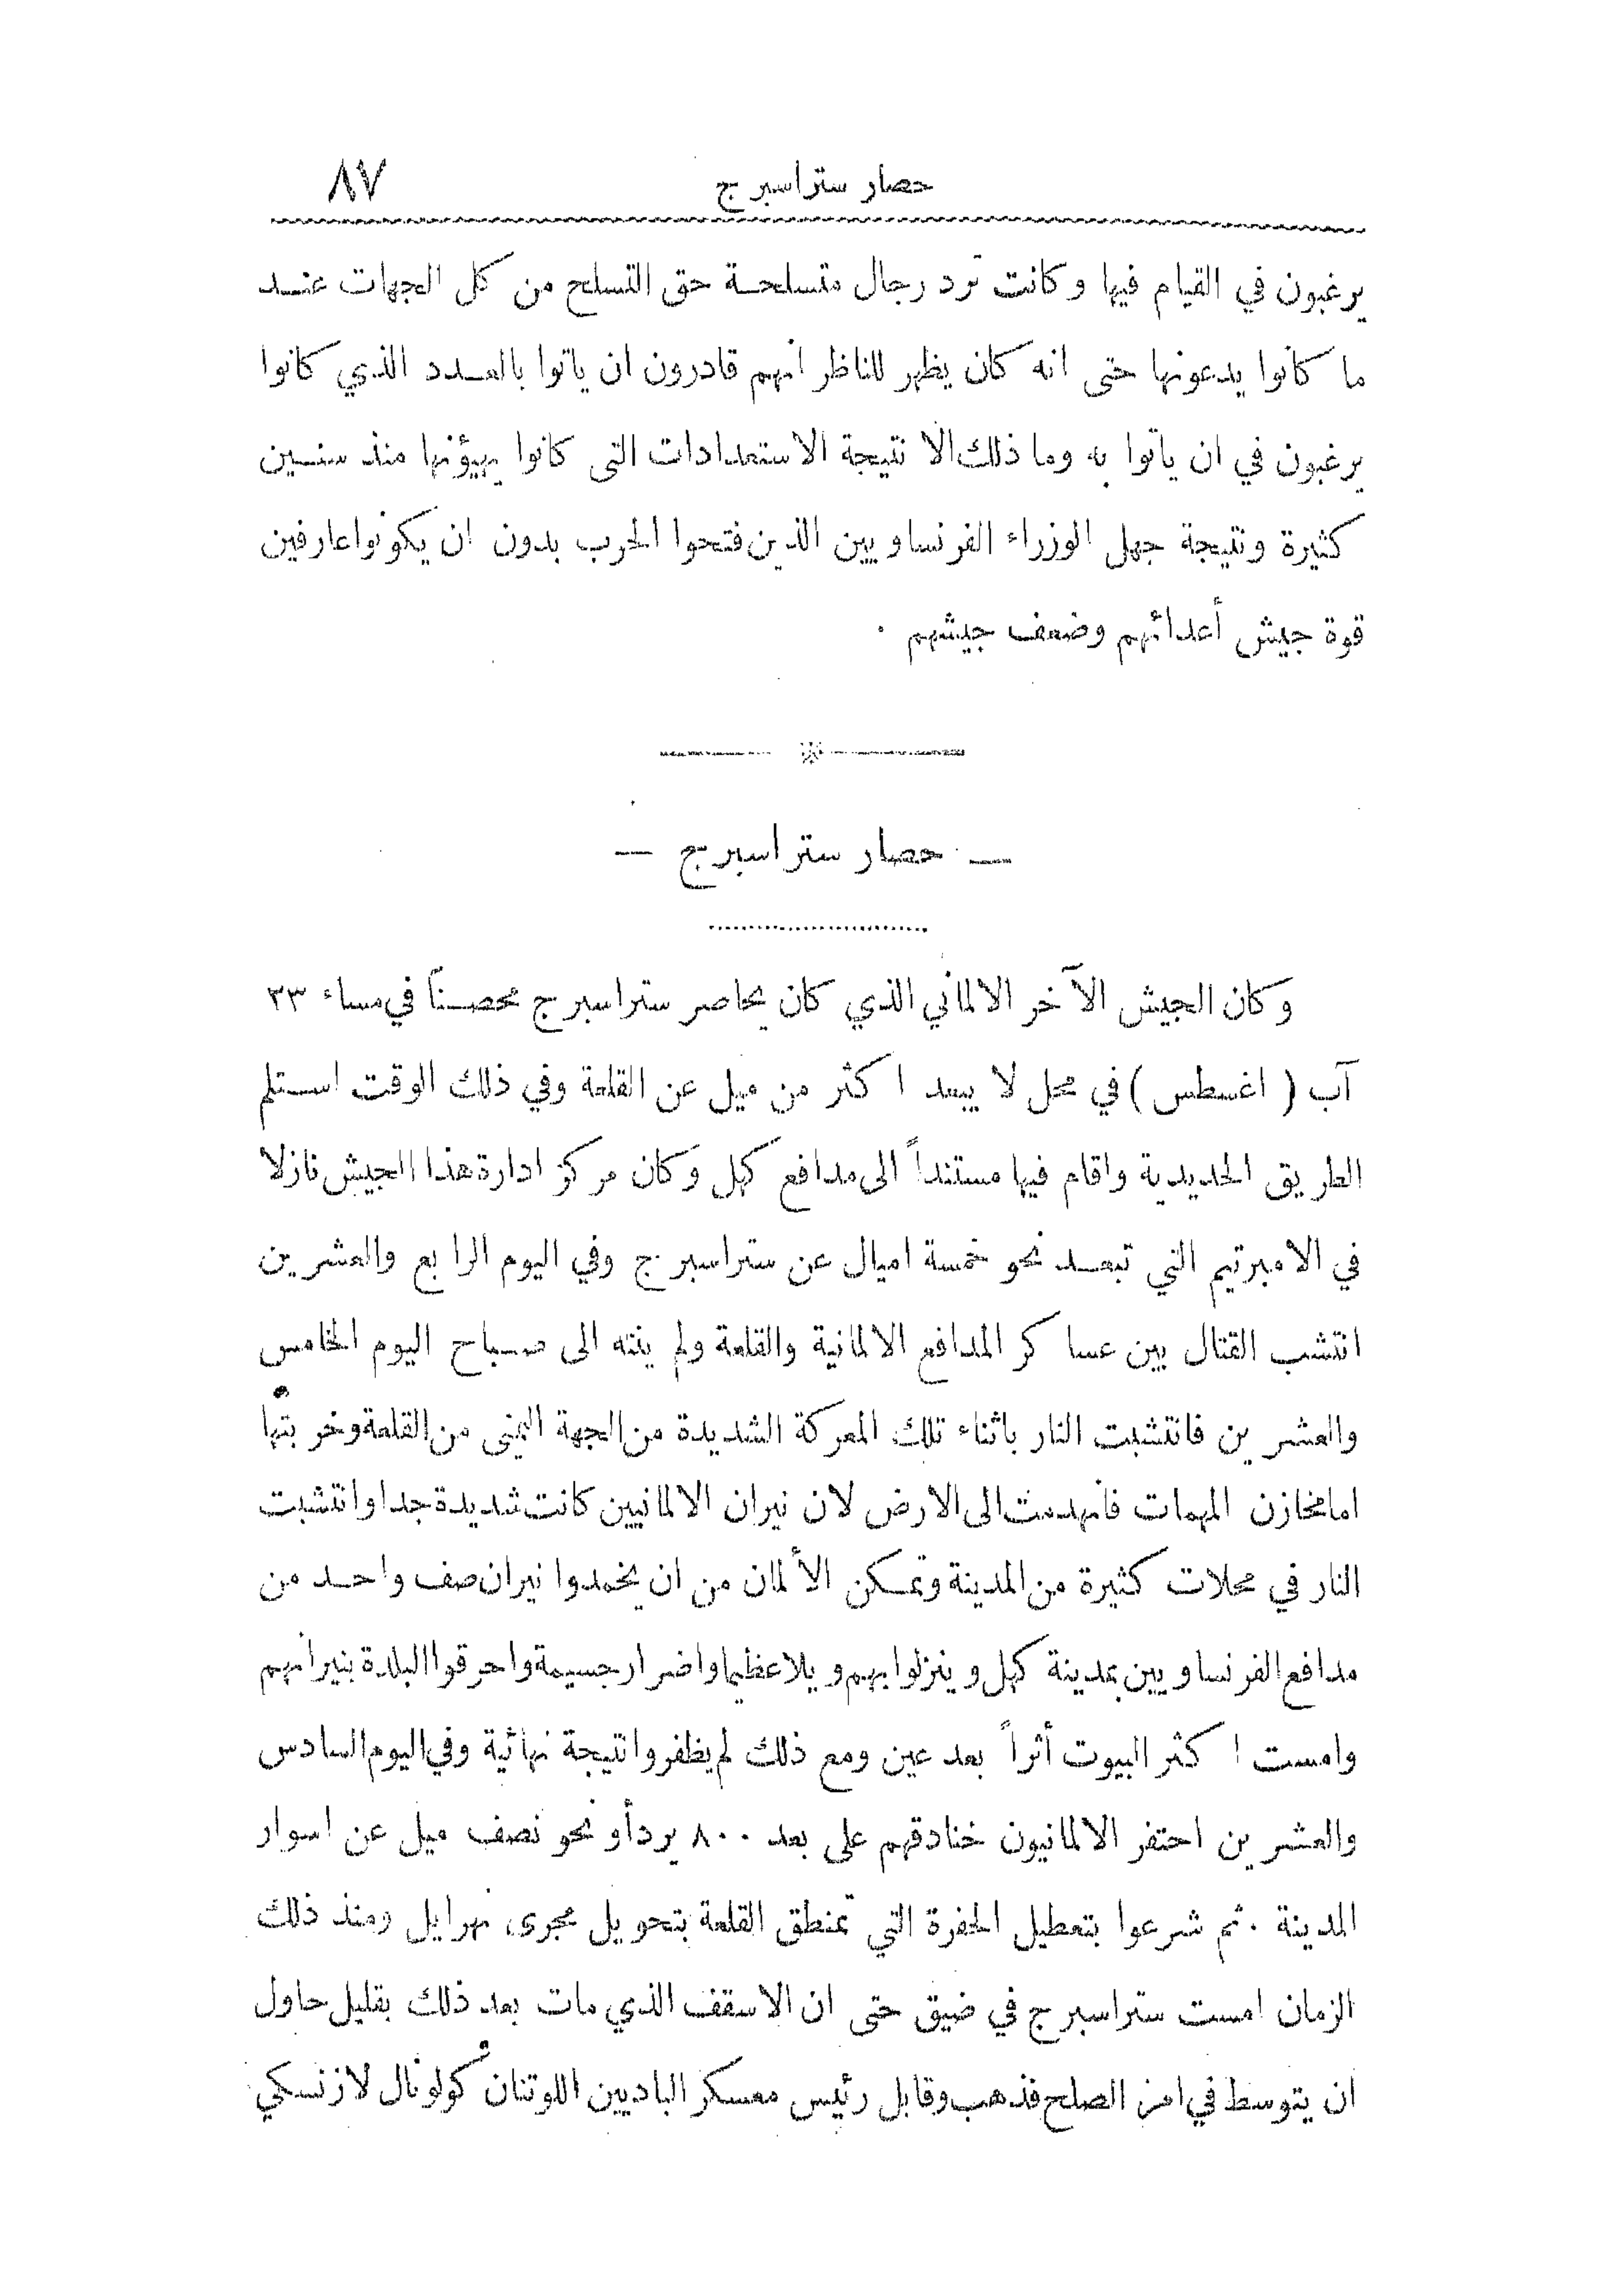 حصار ستراسبرج ٨٧
يرغبون في القيام فيها وكانت ترد رجال متسلحة حق التسلح من كل الجهات عند
ما كانوا يدعونها حتى انه كان يظهر للناظر انهم قادرون ان ياتوا بالعدد الذي كانوا
يرغبون في ان ياتوا به وما ذلك الا نتيجة الاستعدادات التى كانوا يهيؤنها منذ سنين
كثيرة ونتيجة جهل الوزراء الفرنساويين الذين فتحوا الحرب بدون ان يكونوا عارفين
قوة جيش أعدائهم وضعف جيشهم .
— حصار ستراسبرج —
وكان الجيش الآخر الالماني الذي كان يحاصر ستراسبرج محصناً في مساء ٢٣
آب ( اغسطس ) في محل لا يبعد اكثر من ميل عن القلعة وفي ذلك الوقت استلم
الطريق الحديدية واقام فيها مستنداً الى مدافع كهل وكان مركز ادارة هذا الجيش نازلا
في الامبرتيم التي تبعد نحو خمسة اميال عن ستراسبرج وفي اليوم الرابع والعشرين
انتشب القتال بين عساكر المدافع الالمانية والقلعة ولم ينته الى صباح اليوم الخامس
والعشرين فانتشبت النار باثناء تلك المعركة الشديدة من الجهة اليمنى من القلعة وخربتها
اما مخازن المهمات فانهدمت الى الارض لان نيران الالمانيين كانت شديدة جدا وانتشبت
النار في محلات كثيرة من المدينة وتمكن الألمان من ان يخمدوا نيران صف واحد من
مدافع الفرنساويين بمدينة كهل وينزلوا بهم ويلا عظيما واضرار جسيمة واحرقوا البلدة بنيرانهم
وامست اكثر البيوت أثراً بعد عين ومع ذلك لم يظفروا نتيجة نهائية وفي اليوم السادس
والعشرين احتفر الالمانيون خنادقهم على بعد ٨٠٠ يرد أو نحو نصف ميل عن اسوار
المدينة . ثم شرعوا بتعطيل الحفرة التي تمنطق القلعة بتحويل مجرى نهر ايل ومنذ ذلك
الزمان امست ستراسبرج في ضيق حتى ان الاسقف الذي مات بعد ذلك بقليل حاول
ان يتوسط في امر الصلح فذهب وقابل رئيس معسكر الباديين اللوتنان كولونال لازنسكي